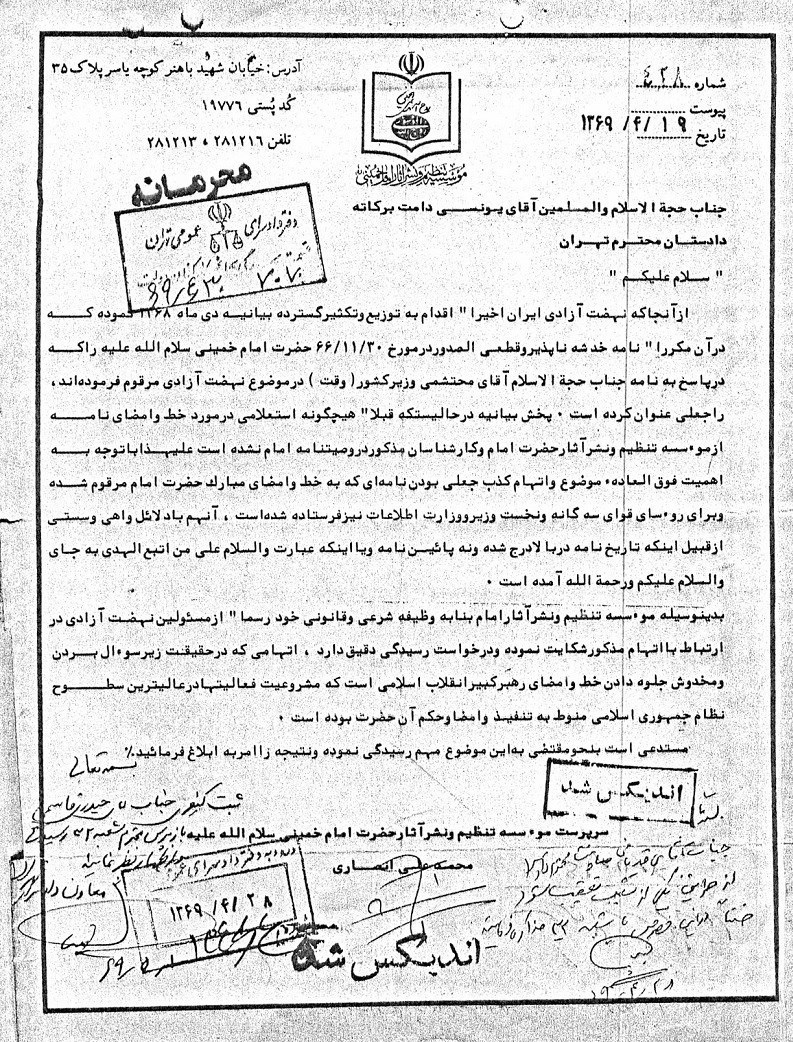 شماره ٤٣٨
پیوست
تاریخ ١٣۶٩/۴/١٩
مؤسسه تنظیم و نشر آثار امام خمینی
آدرس: خیابان شهید باهنر کوچه یاسر پلاک ٣۵
کد پستی ١٩٧٧۶
تلفن ٢٨١٢١۶ ، ٢٨١٢١٣
محرمانه
دفتر دادسرای عمومی تهران
جناب حجة الاسلام والمسلمین آقای یونسی دامت برکاته
دادستان محترم تهران
" سلام علیکم "
ازآنجاکه نهضت آزادی ایران اخیرا" اقدام به توزیع وتکثیرگسترده بیانیه دی ماه ١٣۶٨ نموده که
درآن مکررا" نامه خدشه ناپذیروقطعی الصدوردرمورخ ۶۶/١١/٣٠ حضرت امام خمینی سلام الله علیه راکه
درپاسخ به نامه جناب حجة الاسلام آقای محتشمی وزیرکشور( وقت ) درموضوع نهضت آزادی مرقوم فرموده‌اند،
راجعلی عنوان کرده است ٠ پخش بیانیه درحالیستکه قبلا" هیچگونه استعلامی درمورد خط وامضای نامه
ازموءسسه تنظیم ونشرآثارحضرت امام وکارشناسان مذکوردروصیتنامه امام نشده است علیهذاباتوجه به
اهمیت فوق العاده‌ء موضوع واتهام کذب جعلی بودن نامه‌ای که به خط وامضای مبارک حضرت امام مرقوم شده
وبرای روءسای قوای سه گانه ونخست وزیرووزارت اطلاعات نیزفرستاده شده‌است ، آنهم بادلائل واهی وسستی
ازقبیل اینکه تاریخ نامه دربالادرج شده ونه پائین نامه ویااینکه عبارت والسلام علی من اتبع الهدی به جای
والسلام علیکم ورحمة الله آمده است ٠
بدینوسیله موءسسه تنظیم ونشرآثارامام بنابه وظیفه شرعی وقانونی خود رسما" ازمسئولین نهضت آزادی در
ارتباط بااتهام مذکورشکایت نموده ودرخواست رسیدگی دقیق دارد ، اتهامی که درحقیقت زیرسوءال بردن
ومخدوش جلوه دادن خط وامضای رهبرکبیرانقلاب اسلامی است که مشروعیت فعالیتهادرعالیترین سطوح
نظام جمهوری اسلامی منوط به تنفیذ وامضاوحکم آن حضرت بوده است ٠
مستدعی است بنحومقتضی به‌این موضوع مهم رسیدگی نموده ونتیجه راامربه ابلاغ فرمائید٪
بسمه تعالی
اندیکس شد
سرپرست موءسسه تنظیم ونشرآثارحضرت امام خمینی سلام الله علیه
محمدعلی انصاری
١٣۶٩/۴/٢٨
اندیکس شد